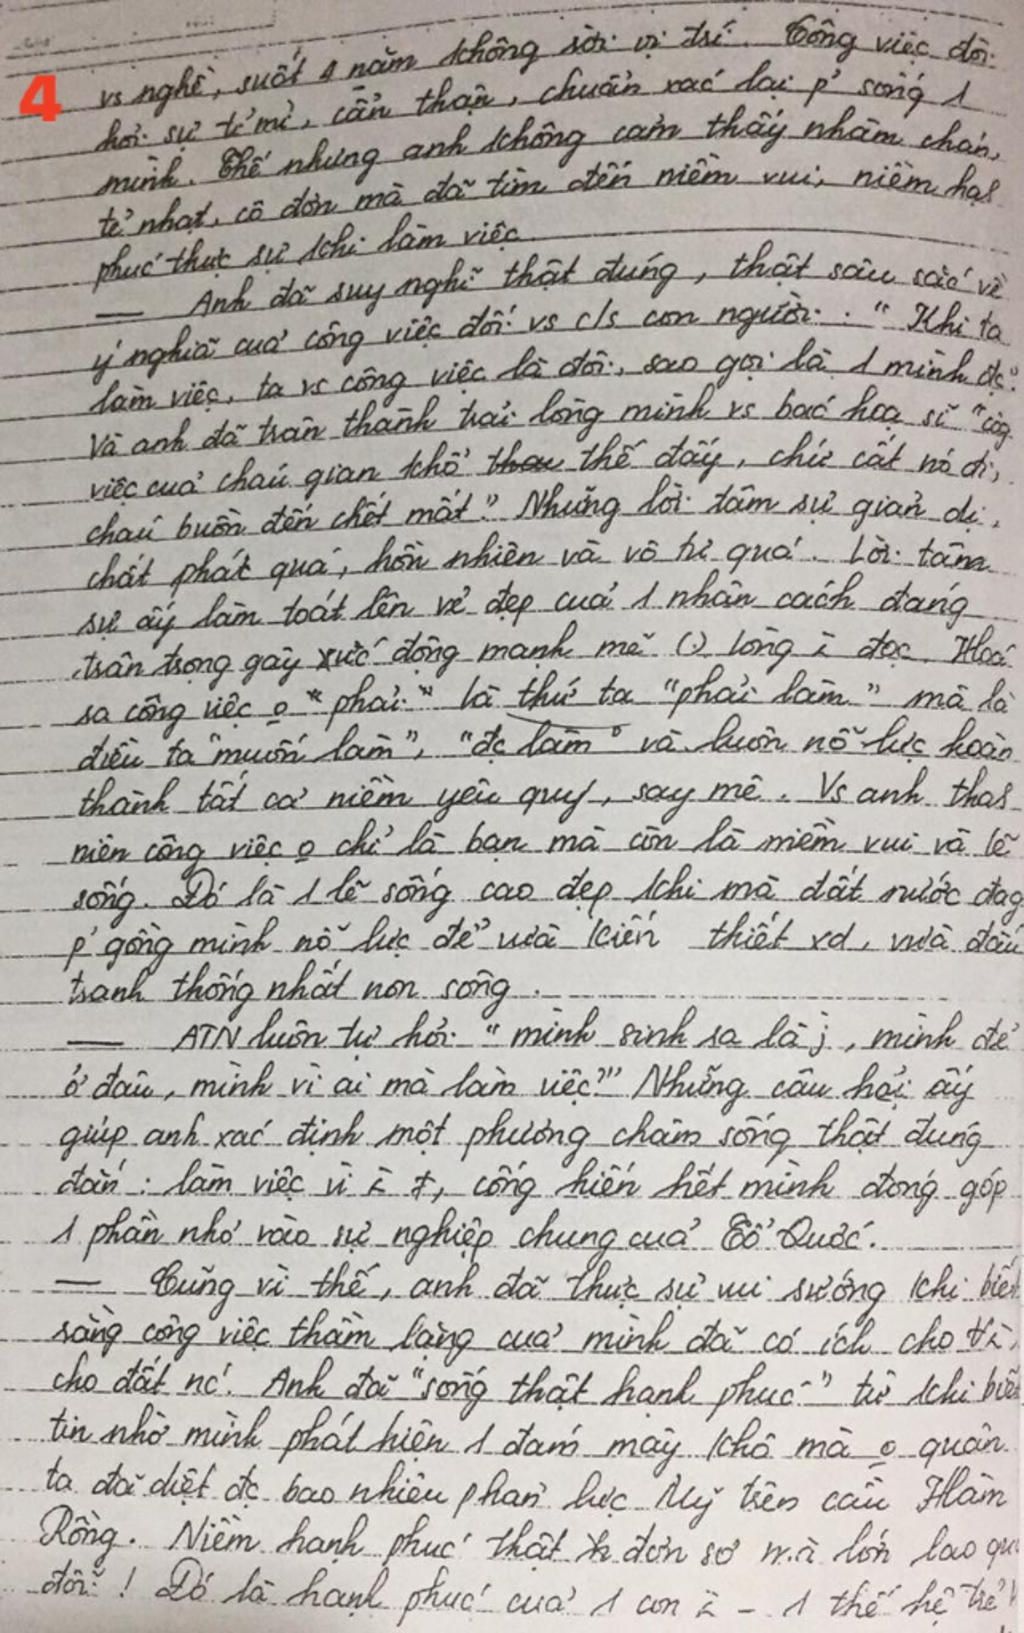 4
vs nghề, suốt 4 năm không rời vị trí. Công việc đòi
hỏi sự tỉ mỉ, cẩn thận, chuẩn xác lại p' sống 1
mình. Thế nhưng anh không cảm thấy nhàm chán,
tẻ nhạt, cô đơn mà đã tìm đến niềm vui, niềm hạh
phúc thực sự khi làm việc
— Anh đã suy nghĩ thật đúng, thật sâu sắc về
ý nghĩa của công việc đối vs c/s con người: "Khi ta
làm việc, ta vs công việc là đôi, sao gọi là 1 mình đc".
Và anh đã trân thành trải lòng mình vs bác hoạ sĩ "côg
việc của cháu gian khổ thế đấy, chứ cất nó đi,
cháu buồn đến chết mất". Những lời tâm sự giản dị,
chất phát quá, hồn nhiên và vô tư quá. Lời tâm
sự ấy làm toát lên vẻ đẹp của 1 nhân cách đáng
trân trọng gây xúc động mạnh mẽ (.) lòng i đọc. Hoá
ra công việc o "phải" là thứ ta "phải làm" mà là
điều ta "muốn làm", "đc làm" và luôn nỗ lực hoàn
thành tất cả niềm yêu quý, say mê. Vs anh thah
niên công việc o chỉ là bạn mà còn là niềm vui và lẽ
sống. Đó là 1 lẽ sống cao đẹp khi mà đất nước đag
p' gồng mình nỗ lực để vừa kiến thiết xd, vừa đấu
tranh thống nhất non sông.
— ATN luôn tự hỏi: "mình sinh ra là j, mình đẻ
ở đâu, mình vì ai mà làm việc?" Những câu hỏi ấy
giúp anh xác định một phương châm sống thật đúng
đắn: làm việc vì i ≠, cống hiến hết mình đóng góp
1 phần nhỏ vào sự nghiệp chung của Tổ Quốc.
— Cũng vì thế, anh đã thực sự vui sướng khi biết
rằng công việc thầm lặng của mình đã có ích cho
cho đất nc'. Anh đã "sống thật hạnh phúc" từ khi biết
tin nhờ mình phát hiện 1 đám mây khô mà o quân
ta đã diệt đc bao nhiêu phản lực Mỹ trên cầu Hàm
Rồng. Niềm hạnh phúc thật đơn sơ mà lớn lao quá
đỗi! Đó là hạnh phúc của 1 con i - 1 thế hệ trẻ